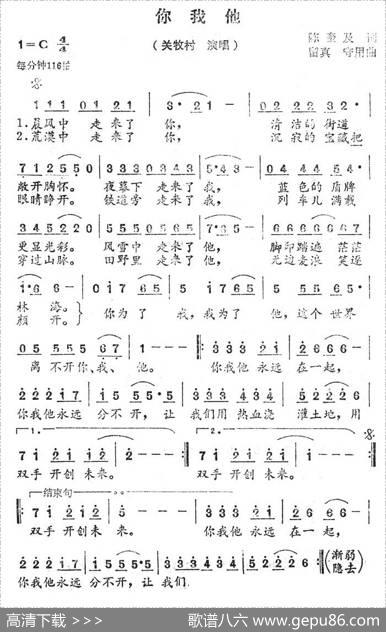 你我他
(关牧村 演唱)
陈奎及 词
1=C 4/4
留真 守用曲
每分钟116拍
1.晨风中 走来了 你, 清洁的 街道
2.荒漠中 走来了 你, 沉寂的 宝藏把
敞开胸怀。 夜幕下 走来了 我, 蓝色的 盾牌
眼睛睁开。 铁道旁 走来了 我, 列车儿 满载
更显光彩。 风雪中 走来了 他, 脚印踏遍 茫茫
穿过山脉。 田野里 走来了 他, 无边麦浪 笑逐
林海。 你为了 我,我为了 他,这个世界
颜开。
离不开你、我、他。 你我他 永远 在一起,
你我他永远 分不开, 让 我们用 热血浇 灌土地,用
1. 2.
双手 开创 未来。 双手 开创 未来。
结束句
双手 开创 未来。 你我他 永远 在一起,
你我他永远 分不开,让 我们
(渐弱
隐去)
高清下载 >>> 歌谱八六 www.gepu86.com